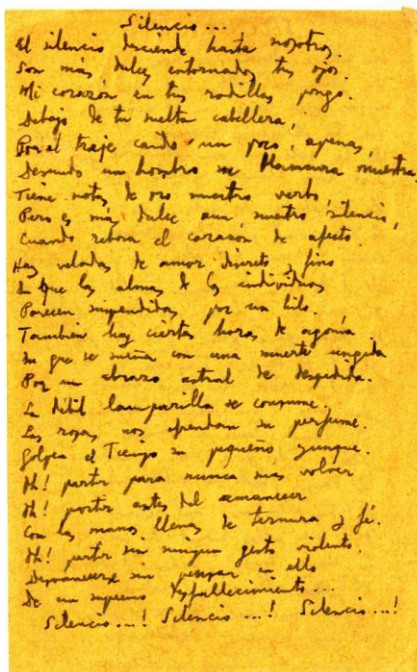 Silencio...
El silencio desciende hasta nosotros.
Son más dulces entornados tus ojos.
Mi corazón en tus rodillas pongo.
Debajo de tu suelta cabellera,
Por el traje caído un poco, apenas,
Desnudo un hombro su blancura muestra.
Tiene notas de oro nuestro verbo,
Pero es más dulce aun, nuestro silencio,
Cuando rebosa el corazón de afecto.
Hay veladas de amor discreto y fino
En que las almas de los individuos
Parecen suspendidas por un hilo.
También hay ciertas horas de agonía
En que se sueña con una muerte ungida
Por un abrazo astral de despedida.
La débil lamparilla se consume.
Las rosas nos ofrendan su perfume.
Golpea el Tiempo su pequeño yunque.
Oh! partir para nunca mas volver
Oh! partir antes del amanecer
Con las manos llenas de ternura y fé.
Oh! partir sin ningun gesto violento.
Desvanecerse sin pensar en ello
De un supremo desfallecimiento...
Silencio...! Silencio...! Silencio...!